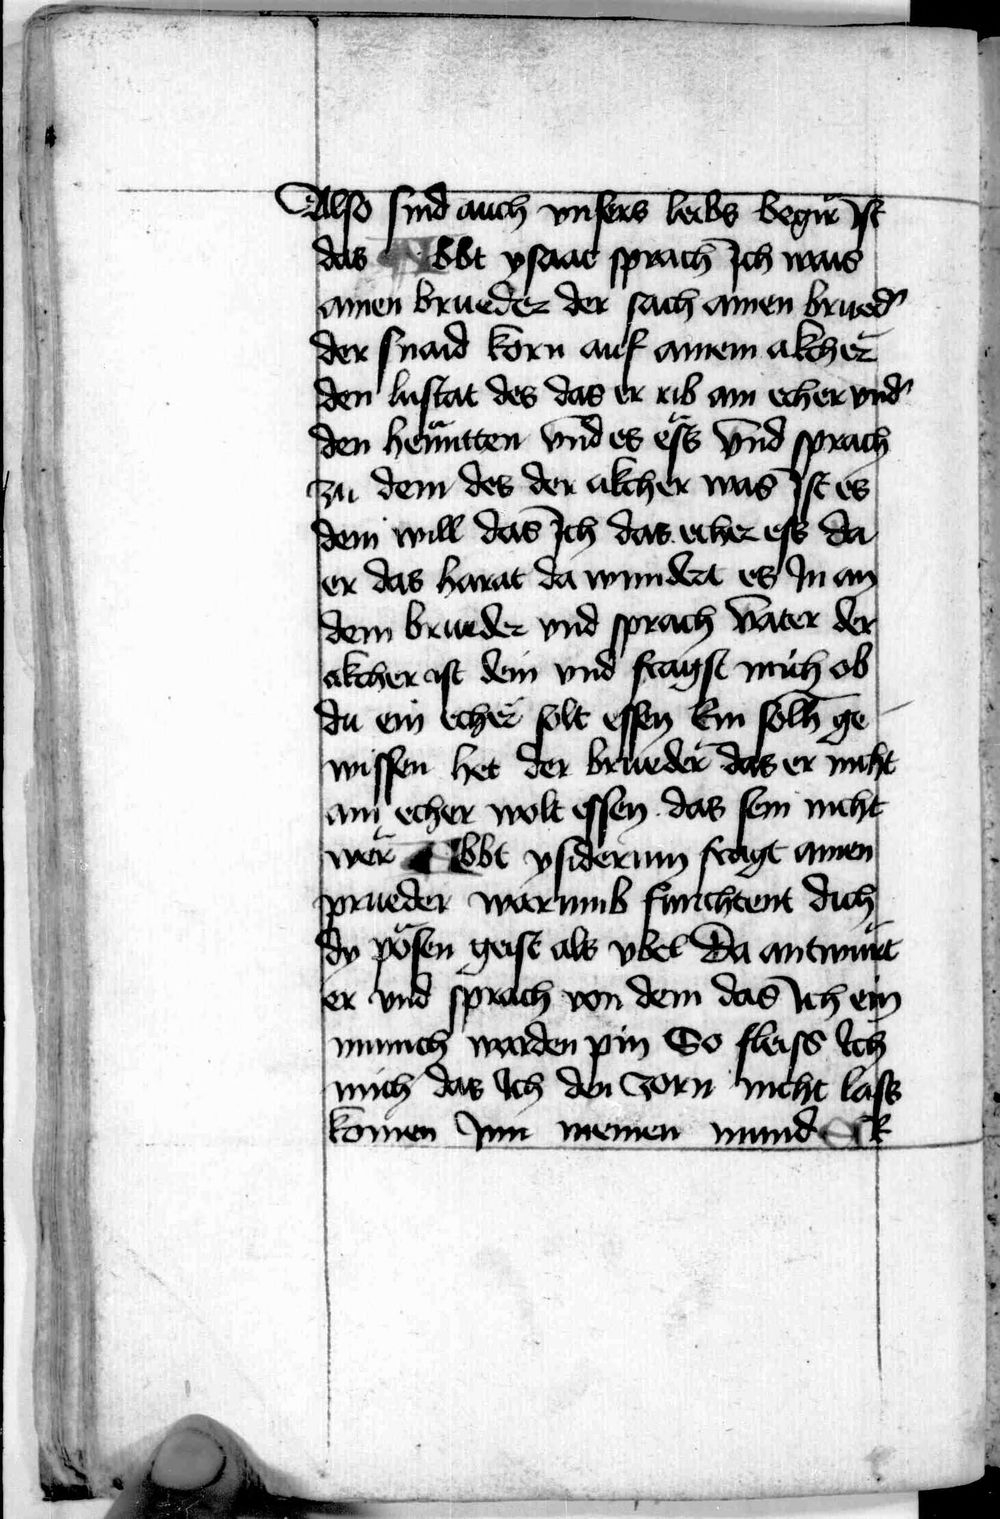 Also sind auch vnsers leibs begir Ist
das Abbt ysaac sprach Ich wais
ainen brueder der sach ainen brued'
der snaid korn auf ainem akcher
den lustat des das er rib ain echer vnd'
den henntten vnd es ëss vnd sprach
zu dem des der akcher was Ist es
dein will das Ich das echer ess da
er das harat da wundert es In an
dem brueder vnd sprach vater der
akcher ist dein vnd fragst mich ob
du ein echer solt essen Ein solh ge
wissen het der brueder das er nicht
ain echer wolt essen das sein nicht
wër Abbt ysiderum fragt ainen
prueder warumb furchtent dich
dy pösen geist als vbel Da antwurt
er vnd sprach von dem das Ich ein
munich warden pin So fleiss Ich
mich das Ich den zorn nicht lass
komen Inn meinen mund